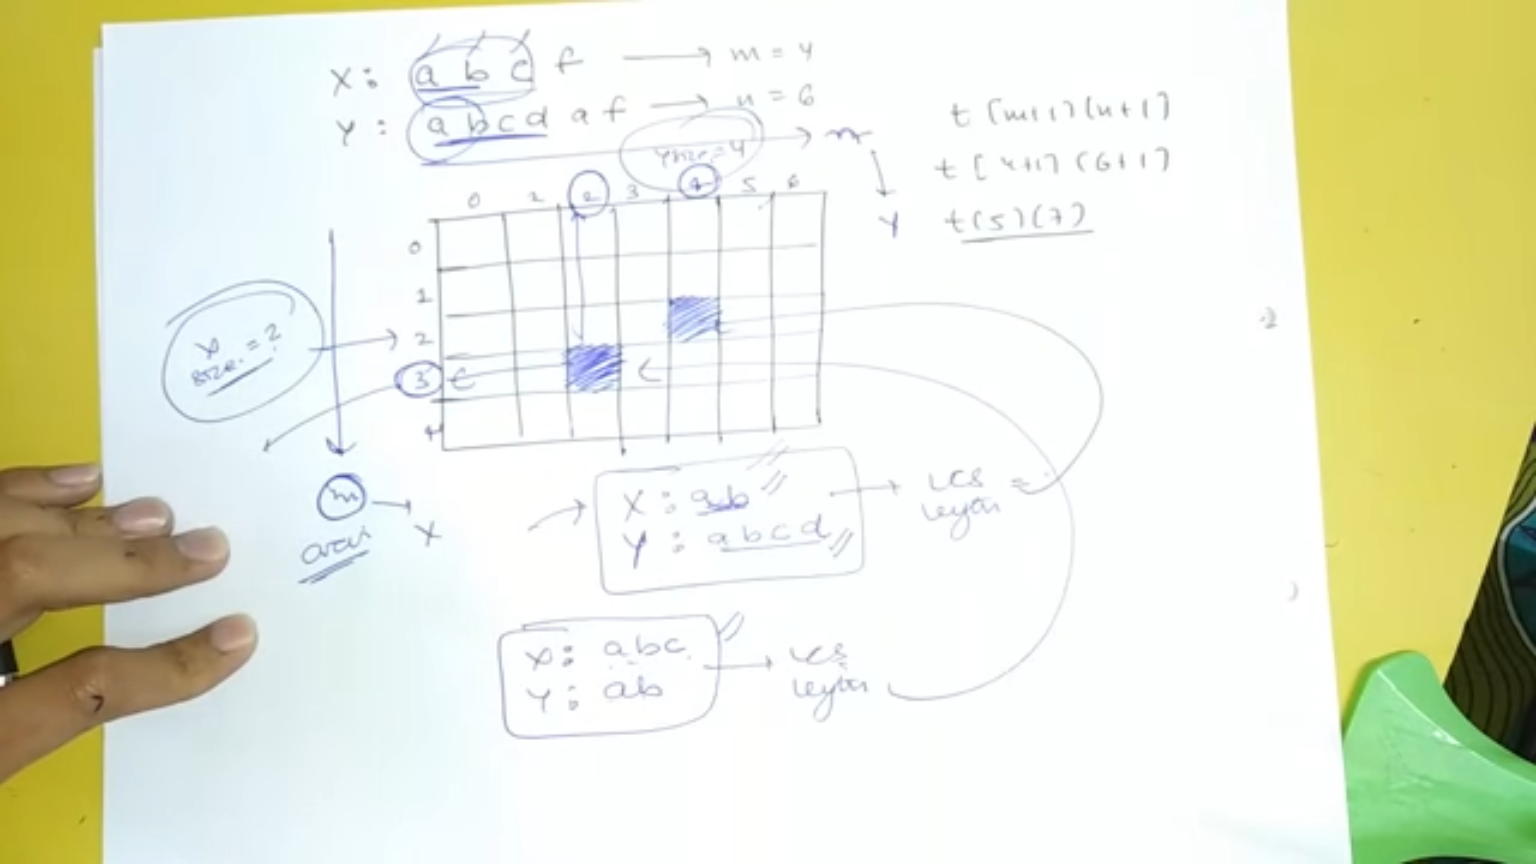 X: a b c f → m = 4
Y: a b c d a f → n = 6
t [m+1] [n+1]
t [4+1] [6+1]
t[5][7]
Y size = 4
n
Y
0 1 2 3 4 5 6
0
1
2
3
4
X size = 2
m → X
X: ab
Y: abcd
→ LCS
X: abc
Y: ab
→ LCS